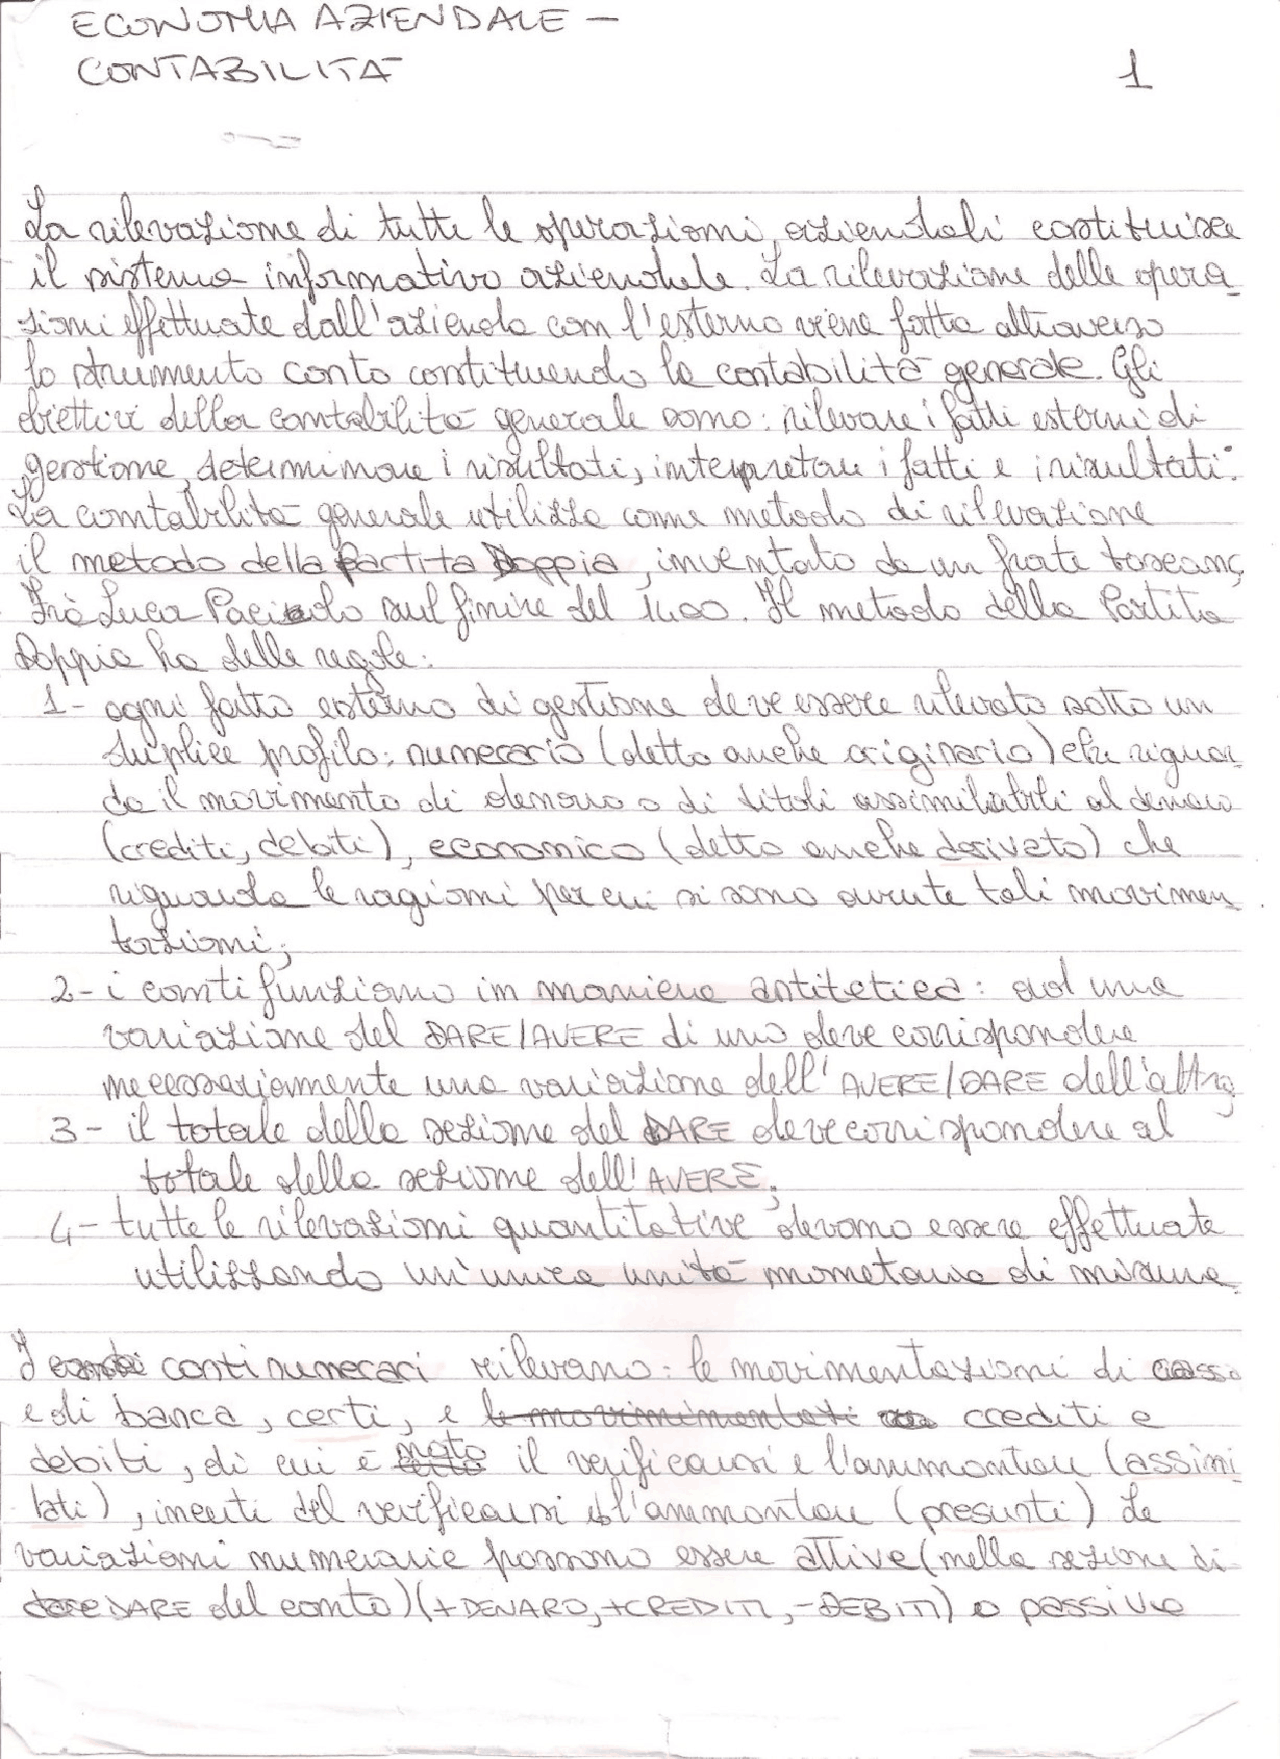 ECONOMIA AZIENDALE -
CONTABILITÀ
1
La rilevazione di tutte le operazioni aziendali costituisce
il sistema informativo aziendale. La rilevazione delle opera
zioni effettuate dall'azienda con l'esterno viene fatta attraverso
lo strumento conto constituendo la contabilità generale. Gli
obiettivi della contabilità generale sono: rilevare i fatti esterni di
gestione, determinare i risultati, interpretare i fatti e i risultati.
La contabilità generale utilizza come metodo di rilevazione
il metodo della Partita Doppia, inventato da un frate toscano,
Frà Luca Paciolo sul finire del 1400. Il metodo della Partita
Doppia ha delle regole:
1- ogni fatto esterno di gestione deve essere rilevato sotto un
duplice profilo: numerario (detto anche originario) che riguar
da il movimento di denaro o di titoli assimilabili al denaro
(crediti, debiti), economico (detto anche derivato) che
riguarda le ragioni per cui si sono avute tali movimen
tazioni;
2- i conti funziono in maniera antitetica: ad una
variazione del DARE/AVERE di uno deve corrispondere
necessariamente una variazione dell'AVERE/DARE dell'altro;
3- il totale della sezione del DARE deve corrispondere al
totale della sezione dell'AVERE;
4- tutte le rilevazioni quantitative devono essere effettuate
utilizzando un'unica unità monetaria di misura.
I conti numerari rilevano: le movimentazioni di cassa
e di banca, certi, e crediti e
debiti, di cui è noto il verificarsi e l'ammontare (assimi
lati), incerti del verificarsi e l'ammontare (presunti). Le
variazioni numerarie possono essere attive (nella sezione di
DARE del conto) (+DENARO, +CREDITI, -DEBITI) o passive